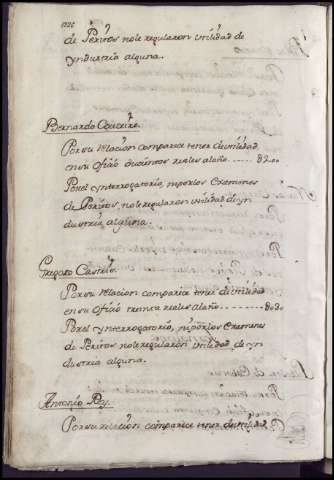 de Peritos nole regularon utilidad de
yndustria alguna.
Bernardo
Por su relacion comparece tener de utilidad
en su ofizio reales al año
Por el ynterrogatorio, ni por los Examenes
de Peritos, nole regularon utilidad de yn
dustria alguna.
Castrillo
Por su relacion comparece tener de utilidad
en su ofizio treinta reales al año
Por el ynterrogatorio, ni por los Examenes
de Peritos nole regularon utilidad de yn
dustria alguna.
Antonio Rey.
Por su relacion comparece tener de utilid